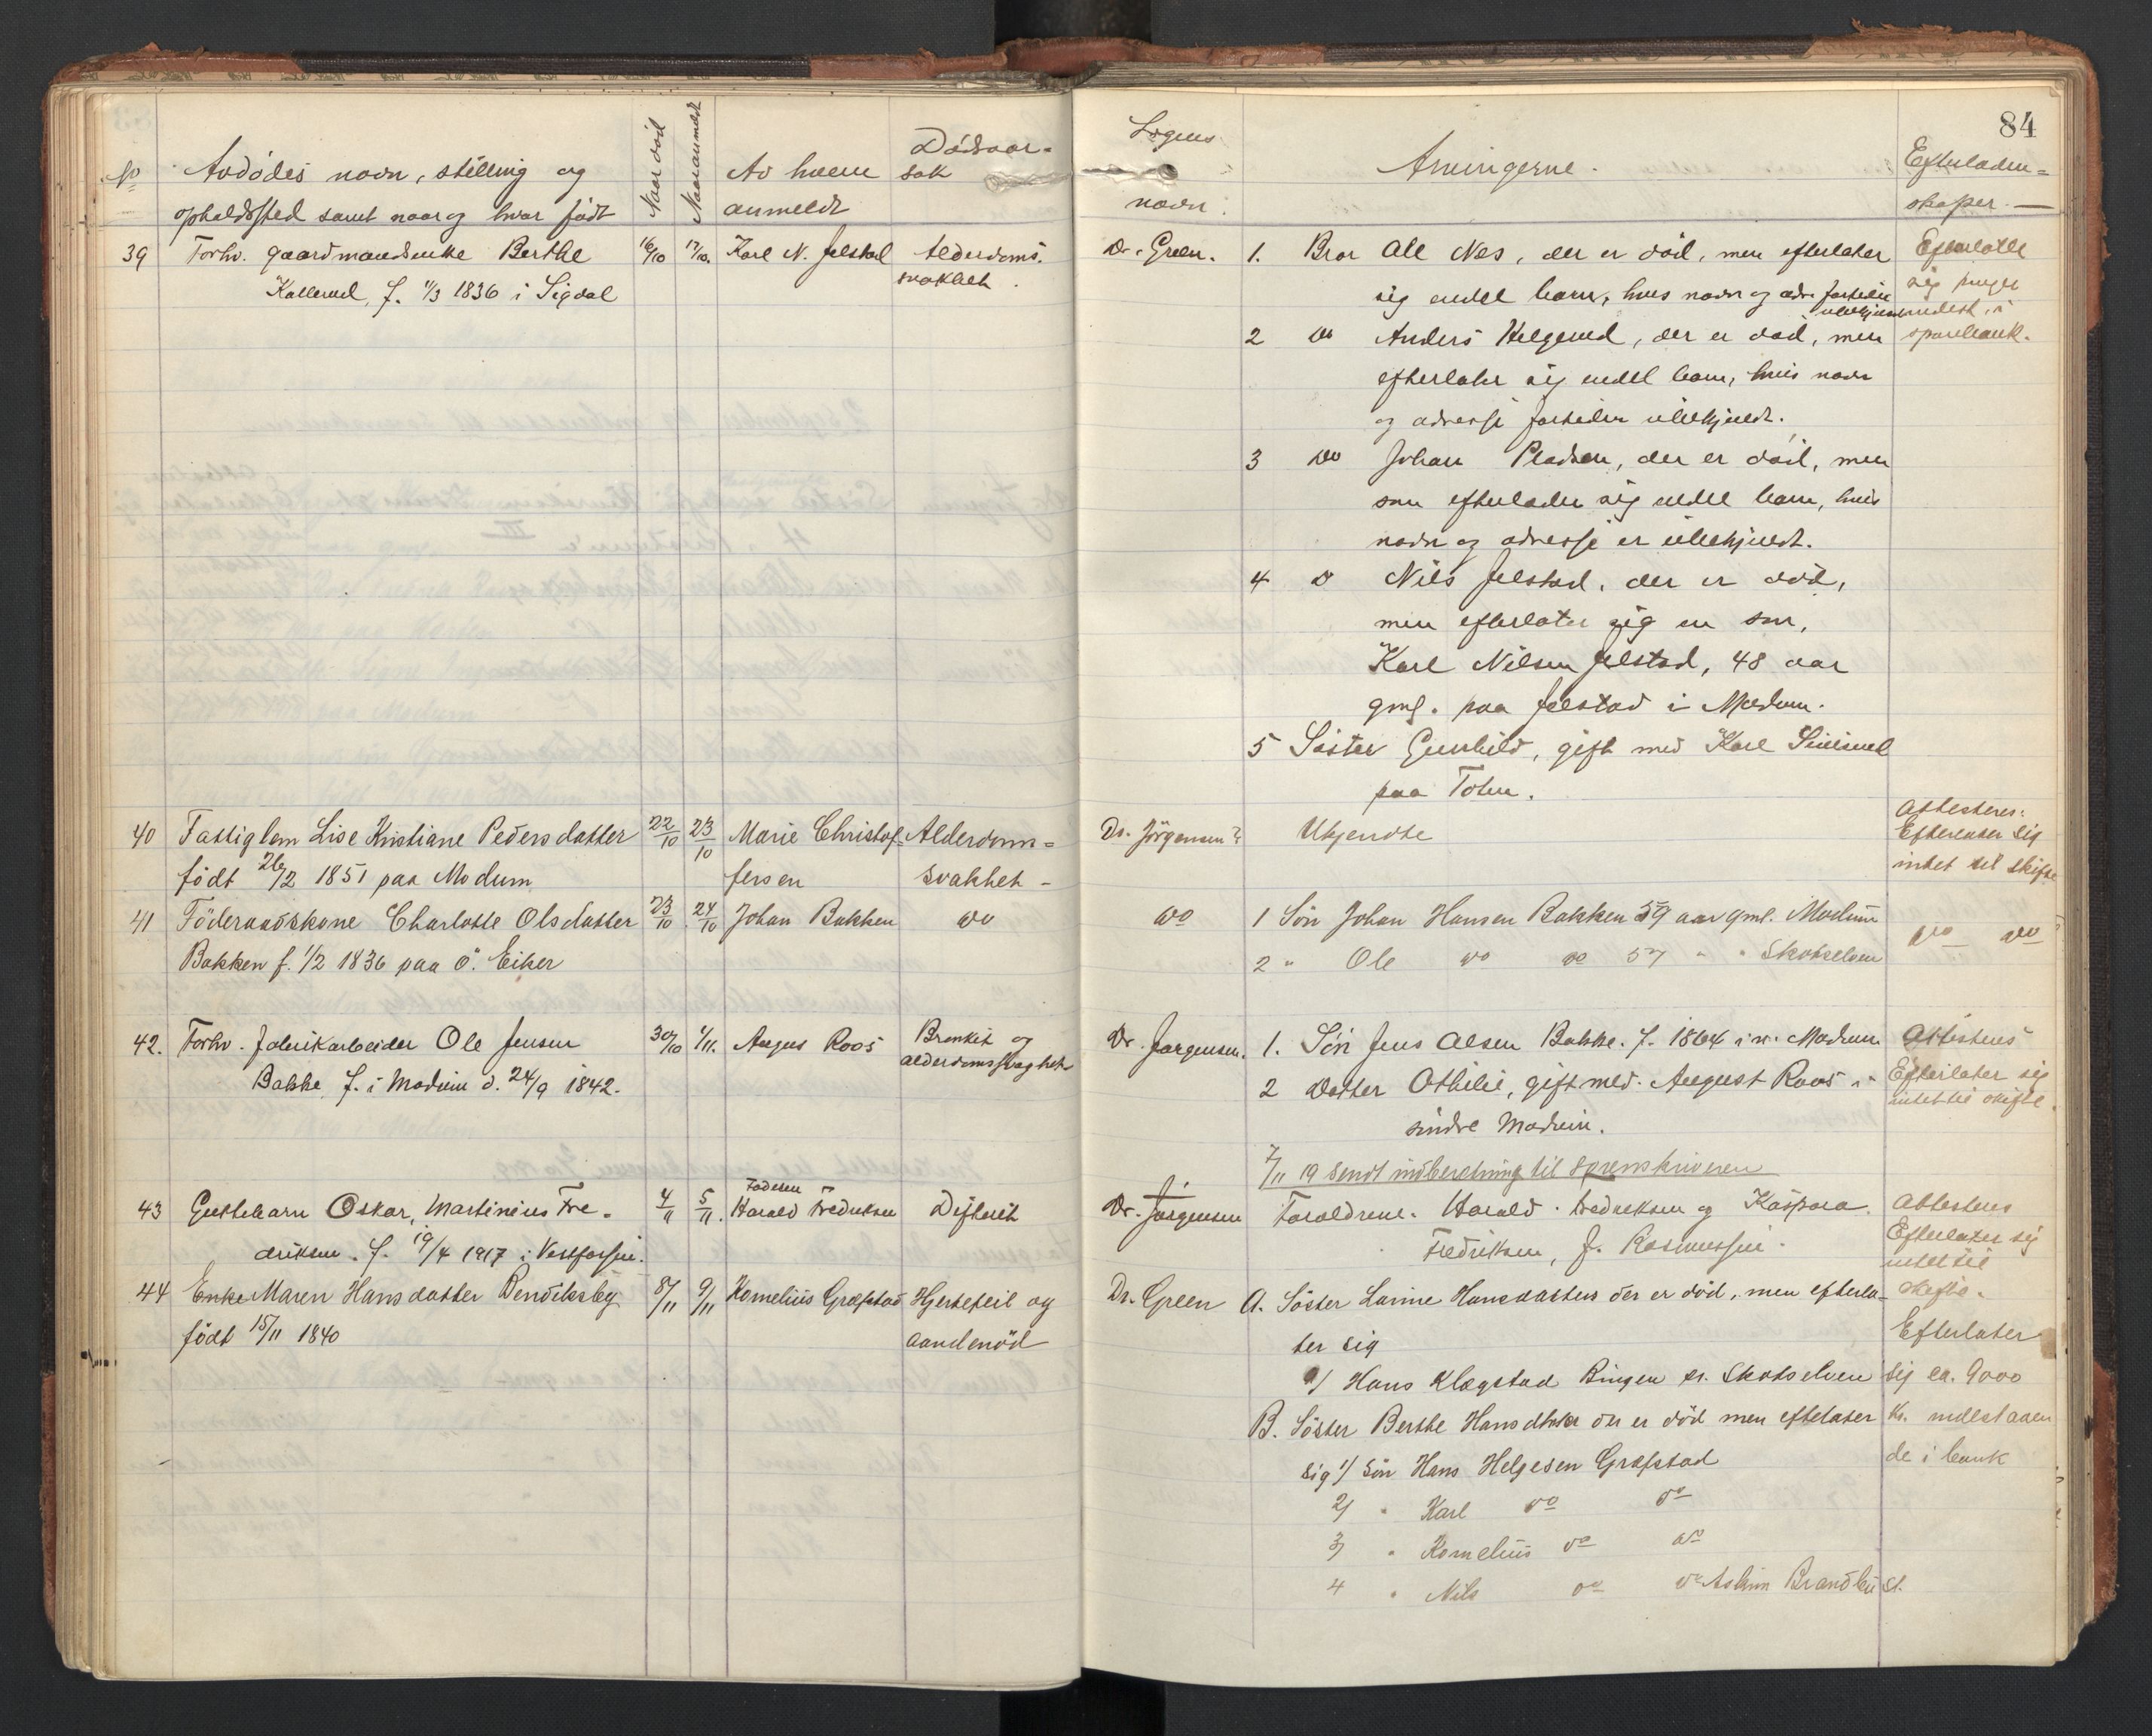 84
No Avdødes navn, stilling og
opholdssted samt naar og hvor født
Naar død
Naar anmeldt
Av hvem
anmeldt
Dødsaar-
sak
Lægens
navn.
Arvingerne.
Efterladen-
skaper. —
39 Forhv. gaardmandsenke Berthe
Kollerud, f. 11/3 1836 i Sigdal
16/10 17/10. Karl N. Jelstad
Alderdoms-
svakhet.
Dr. Green.
1. Bror Ole Nes, der er død, men efterlater
sig endel barn, hvis navn og adr. fortiden
ubekjendt
2 do Anders Helgerud, der er død, men
efterlater sig endel barn, hvis navn
og adresse fortiden ubekjendt.
3 do Johan Pladsen, der er død, men
som efterlader sig endel barn, hvis
navn og adresse er ubekjendt.
4 do Nils Jelstad, der er død,
men efterlater sig en søn,
Karl Nilsen Jelstad, 48 aar
gml. paa Jelstad i Modum.
5 Søster Gunhild, gift med Karl
paa Toten.
Efterlatt
sig penger
indest. i
sparebank.
40 Fattiglem Lise Kristiane Pedersdatter
født 26/2 1851 paa Modum
22/10 23/10 Marie Christof-
fersen
Alderdoms-
svakhet -
Dr. Jörgensen
Ukjendte
Attesteres:
Efterlater sig
intet til skifte
41 Föderaadskone Charlotte Olsdatter
Bakken f. 1/2 1836 paa ö. Eiker
23/10 24/10 Johan Bakken do
do
1 Sön Johan Hansen Bakken 59 aar gml. Modum
2 " Ole do do 57 " " Skotselven
do do
42. Forhv. fabrikarbeider Ole Jensen
Bakke, f. i Modum d. 24/9 1842.
30/10 1/11. August Roos
Bronkit og
alderdomssvaghet
Dr. Jørgensen.
1. Søn Jens Olsen Bakke. f. 1864 i n. Modum
2 Datter Othilie, gift med August Roos i
søndre Modum.
Attesteres
Efterlater sig
intet til skifte.
7/11 19 sendt indberetning til Sorenskriveren
43 Guttebarn Oskar, Martinius Fre-
driksen. f. 19/4 1917 i Vestfossen.
4/11 5/11. Faderen
Harald Fredriksen
Difterit
Dr. Jørgensen
Foreldrene. Harald Fredriksen og Kaspara
Fredriksen, f. Rasmussen.
Attesteres
Efterlater sig
intet til
skifte.
44 Enke Maren Hansdatter Bendiksby
født 15/11 1840
8/11 9/11 Kornelius Græfstad
Hjertefeil og
aandenöd
Dr. Green
A. Söster Larine Hansdatter der er död, men efterla-
ter sig
1/ Hans Klægstad Bingen pr. Skotselven
B. Söster Berthe Hansdatter der er död men efterlater
sig 1/ sön Hans Helgesen Græfstad
2/ " Karl do do
3/ " Kornelius do do
4 " Nils do do Askim Brandbu st.
Efterlater
sig ca. 9000
Kr. indestaaen
de i bank